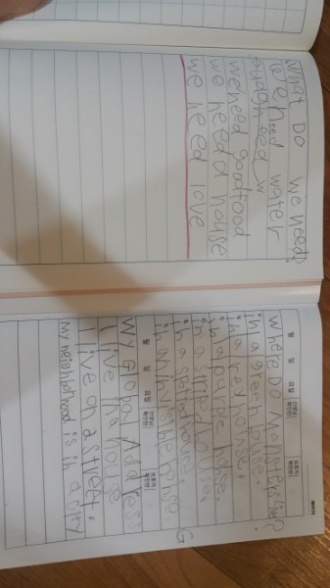 What Do we need?
We need water
enough seed
we need good food
we need house
we need love
월 일 요일
Where Do Monsters live?
in a green house.
in a red house.
in a purple house.
in a striped house.
in a spotted house.
in an invisible house
월 일 요일
My Global Address
I live in a house
I live on a street.
My neighborhood is in a city